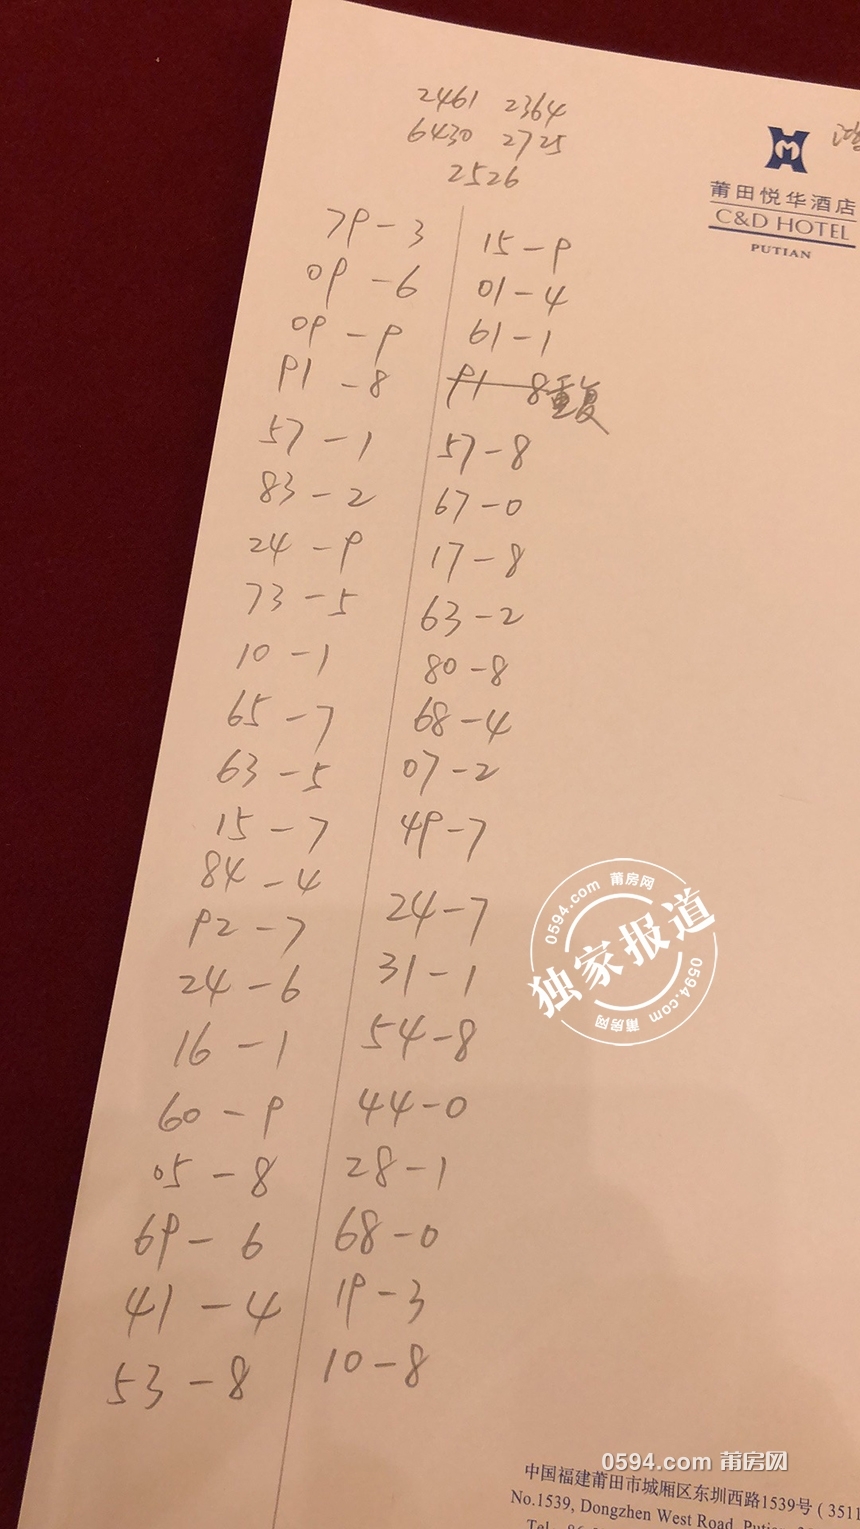 2461 2364
6430 2725
2526
79-3
09-6
09-9
91-8
57-1
83-2
24-9
73-5
10-1
65-7
63-5
15-7
84-4
92-7
24-6
16-1
60-9
05-8
69-6
41-4
53-8
15-9
01-4
61-1
91-8重复
57-8
67-0
17-8
63-2
80-8
68-4
07-2
49-7
24-7
31-1
54-8
44-0
28-1
68-0
19-3
10-8
莆田悦华酒店
C&D HOTEL
PUTIAN
0594.com 莆房网
独家报道
0594.com 莆房网
0594.com 莆房网
中国福建莆田市城厢区东圳西路1539号 ( 3511
No.1539, Dongzhen West Road